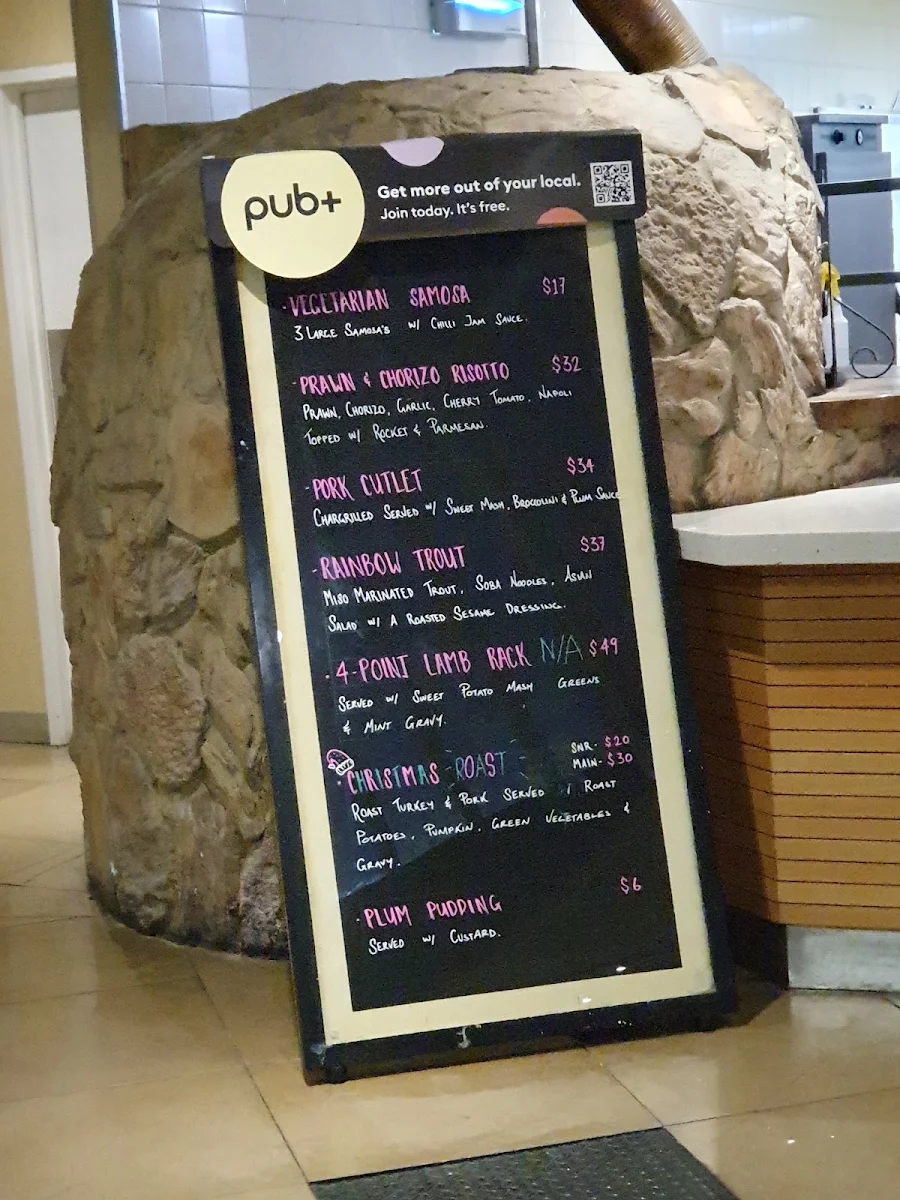 pub+
Get more out of your local.
Join today. It's free.
- VEGETARIAN SAMOSA $17
3 LARGE SAMOSA'S W/ CHILLI JAM SAUCE.
- PRAWN & CHORIZO RISOTTO $32
PRAWN, CHORIZO, GARLIC, CHERRY TOMATO, NAPOLI
TOPPED W/ ROCKET & PARMESAN.
- PORK CUTLET $34
CHARGRILLED SERVED W/ SWEET MASH, BROCCOLINI & PLUM SAUCE
- RAINBOW TROUT $37
MISO MARINATED TROUT, SOBA NOODLES, ASIAN
SALAD W/ A ROASTED SESAME DRESSING.
- 4-POINT LAMB RACK N/A $49
SERVED W/ SWEET POTATO MASH GREENS
& MINT GRAVY.
- CHRISTMAS ROAST SNR- $20
MAIN- $30
ROAST TURKEY & PORK SERVED / ROAST
POTATOES, PUMPKIN, GREEN VEGETABLES &
GRAVY.
- PLUM PUDDING $6
SERVED W/ CUSTARD.